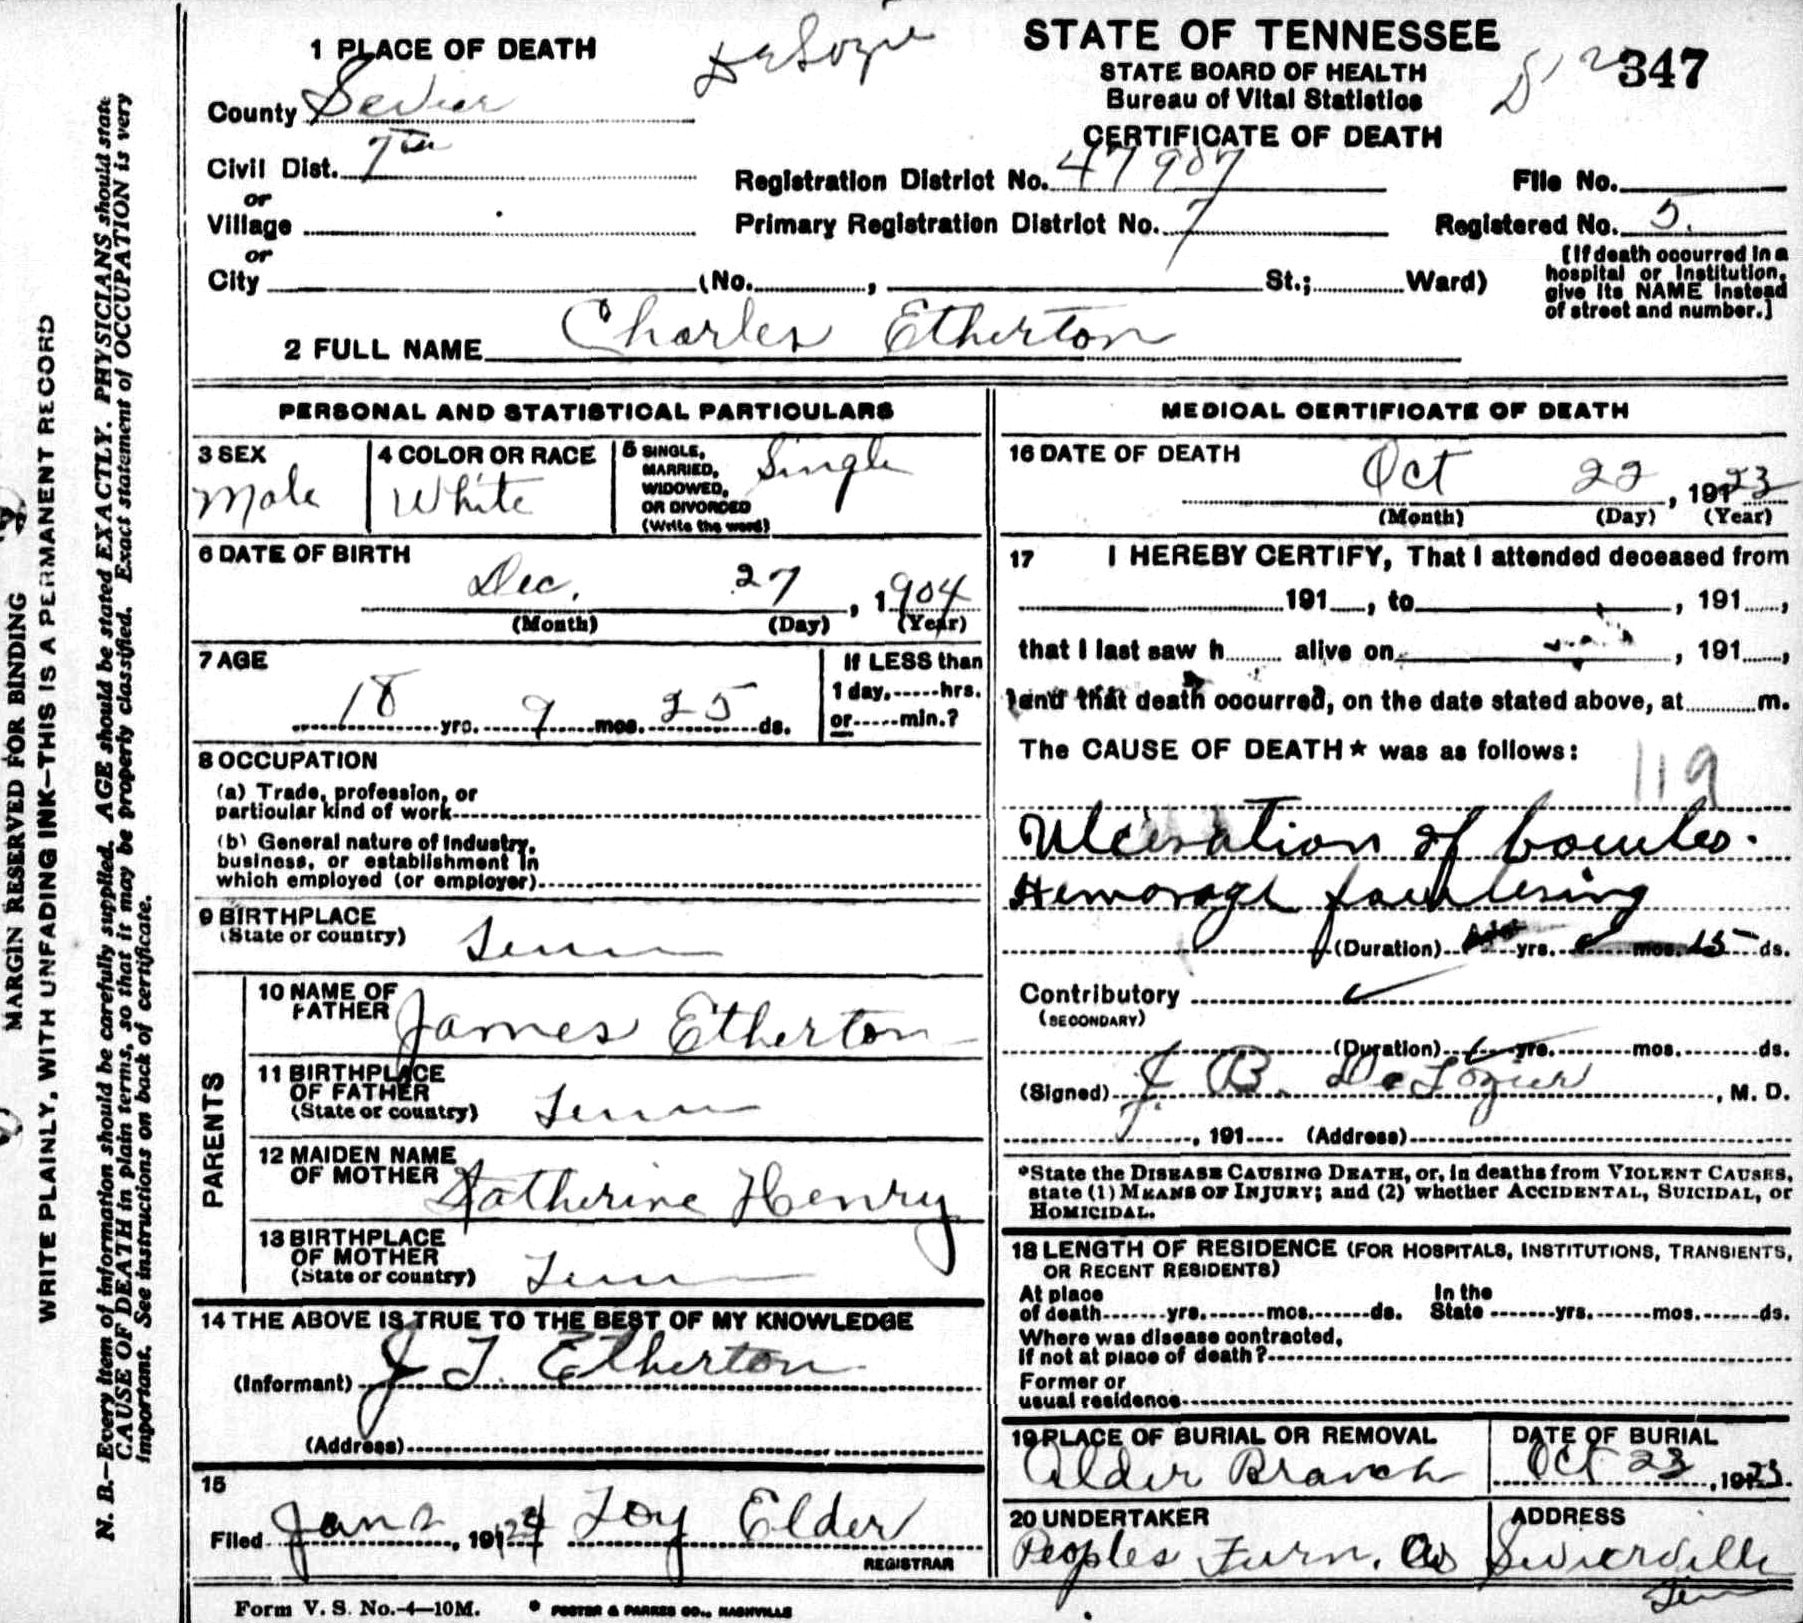 MARGIN RESERVED FOR BINDING
WRITE PLAINLY, WITH UNFADING INK—THIS IS A PERMANENT RECORD
N. B.—Every item of information should be carefully supplied. AGE should be stated EXACTLY. PHYSICIANS should state
CAUSE OF DEATH in plain terms, so that it may be properly classified. Exact statement of OCCUPATION is very
important. See instructions on back of certificate.
1 PLACE OF DEATH
County Sevier
Civil Dist. 7th
or
Village
or
City (No. , St.; Ward)
STATE OF TENNESSEE
STATE BOARD OF HEALTH
Bureau of Vital Statistics
CERTIFICATE OF DEATH
347
Registration District No. 47907
File No.
Primary Registration District No. 7
Registered No. 5.
[If death occurred in a
hospital or institution,
give its NAME instead
of street and number.]
2 FULL NAME Charles Etherton
PERSONAL AND STATISTICAL PARTICULARS
3 SEX
Male
4 COLOR OR RACE
White
5 SINGLE,
MARRIED,
WIDOWED,
OR DIVORCED
(Write the word)
Single
6 DATE OF BIRTH
Dec. 27, 1904
(Month) (Day) (Year)
7 AGE
18 yrs. 9 mos. 25 ds.
If LESS than
1 day, hrs.
or min.?
8 OCCUPATION
(a) Trade, profession, or
particular kind of work
(b) General nature of industry,
business, or establishment in
which employed (or employer)
9 BIRTHPLACE
(State or country) Tenn
PARENTS
10 NAME OF
FATHER James Etherton
11 BIRTHPLACE
OF FATHER
(State or country) Tenn
12 MAIDEN NAME
OF MOTHER Katherine Henry
13 BIRTHPLACE
OF MOTHER
(State or country) Tenn
14 THE ABOVE IS TRUE TO THE BEST OF MY KNOWLEDGE
(Informant) J T. Etherton
(Address)
15
Filed Jan 2, 1924 Loy Elder
REGISTRAR
MEDICAL CERTIFICATE OF DEATH
16 DATE OF DEATH
Oct 22, 1923
(Month) (Day) (Year)
17 I HEREBY CERTIFY, That I attended deceased from
191 , to , 191 ,
that I last saw h alive on , 191 ,
and that death occurred, on the date stated above, at m.
The CAUSE OF DEATH* was as follows:
119
Ulceration of bowles.
Hemoragh
(Duration) yrs. mos. 15 ds.
Contributory
(SECONDARY)
(Duration) yrs. mos. ds.
(Signed) J. B. DeLozier, M. D.
, 191 (Address)
*State the DISEASE CAUSING DEATH, or, in deaths from VIOLENT CAUSES,
state (1) MEANS OF INJURY; and (2) whether ACCIDENTAL, SUICIDAL, or
HOMICIDAL.
18 LENGTH OF RESIDENCE (FOR HOSPITALS, INSTITUTIONS, TRANSIENTS,
OR RECENT RESIDENTS)
At place
of death yrs. mos. ds.
In the
State yrs. mos. ds.
Where was disease contracted,
if not at place of death?
Former or
usual residence
19 PLACE OF BURIAL OR REMOVAL
Alder Branch
DATE OF BURIAL
Oct 23, 1923.
20 UNDERTAKER
Peoples Furn. Co
ADDRESS
Sevierville
Tenn
Form V. S. No.-4—10M.
FOSTER & PARKES CO., NASHVILLE